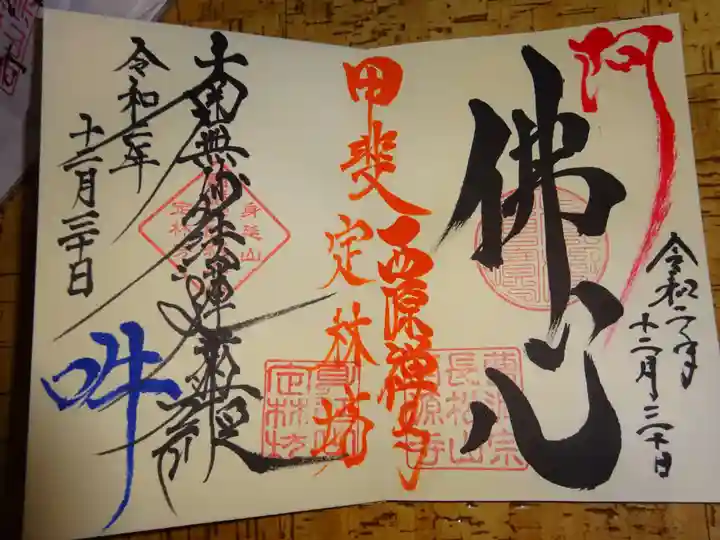 阿
佛心
令和二年
十二月三十日
西原禅寺
曹洞宗
長松山
西原寺
甲斐
定林坊
南無妙法蓮華経
身延山
定林坊
身延山
定林坊
令和二年
十二月三十日
吽